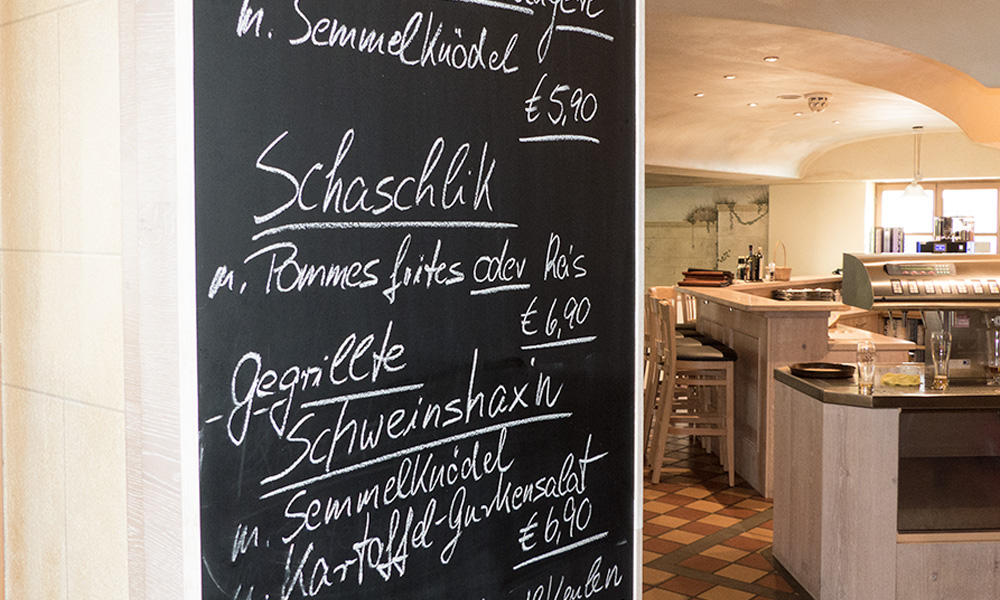 m. Semmelknödel
€ 5,90
Schaschlik
m. Pommes frites oder Reis
€ 6,90
Gegrillte
Schweinshax'n
m. Semmelknödel
Kartoffel-Gurkensalat
€ 6,90